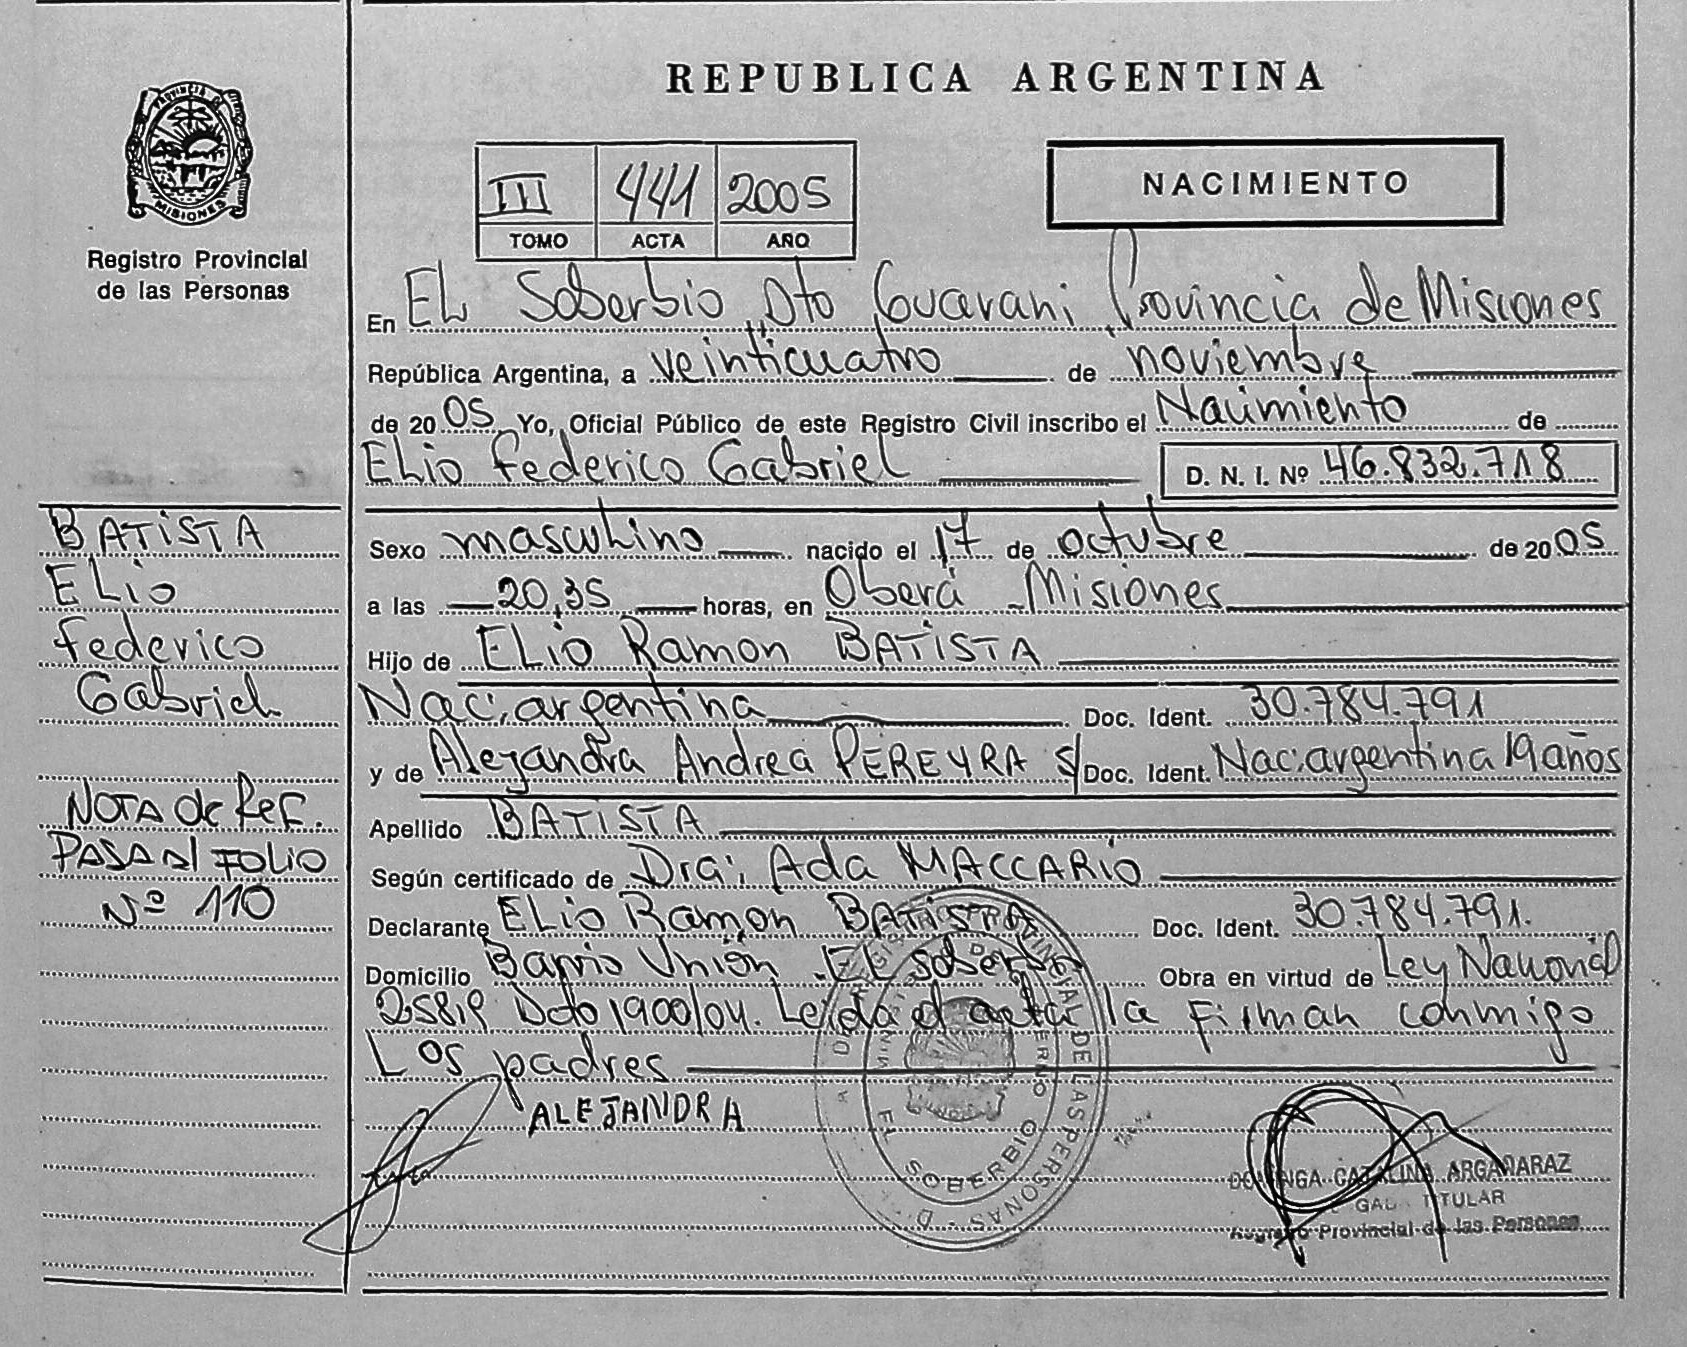 REPUBLICA ARGENTINA
PROVINCIA DE
MISIONES
Registro Provincial
de las Personas
III 441 2005
TOMO ACTA AÑO
NACIMIENTO
En EL Soberbio Dto Guarani Provincia de Misiones
República Argentina, a veinticuatro de noviembre
de 2005 Yo, Oficial Público de este Registro Civil inscribo el Nacimiento de
ELio Federico Gabriel D. N. I. Nº 46.832.718
BATISTA
ELio
Federico
Gabriel
NOTA de Ref.
PASA al FOLIO
Nº 110
Sexo masculino nacido el 17 de octubre de 2005
a las 20,35 horas, en Oberá - Misiones
Hijo de ELio Ramon BATISTA
Nac: argentina Doc. Ident. 30.784.791
y de Alejandra Andrea PEREYRA S/ Doc. Ident. Nac: argentina 19 años
Apellido BATISTA
Según certificado de Dra: Ada MACCARIO
Declarante ELio Ramon BATISTA Doc. Ident. 30.784.791.
Domicilio Barrio Unión - EL Soberbio Obra en virtud de Ley Nacional
25819 Dcto 1900/04. Leída el acta la Firman conmigo
Los padres
ALEJANDRA
PROVINCIAL DE LAS PERSONAS
EL SOBERBIO
CATALINA ARGAÑARAZ
TITULAR
Registro Provincial de las Personas